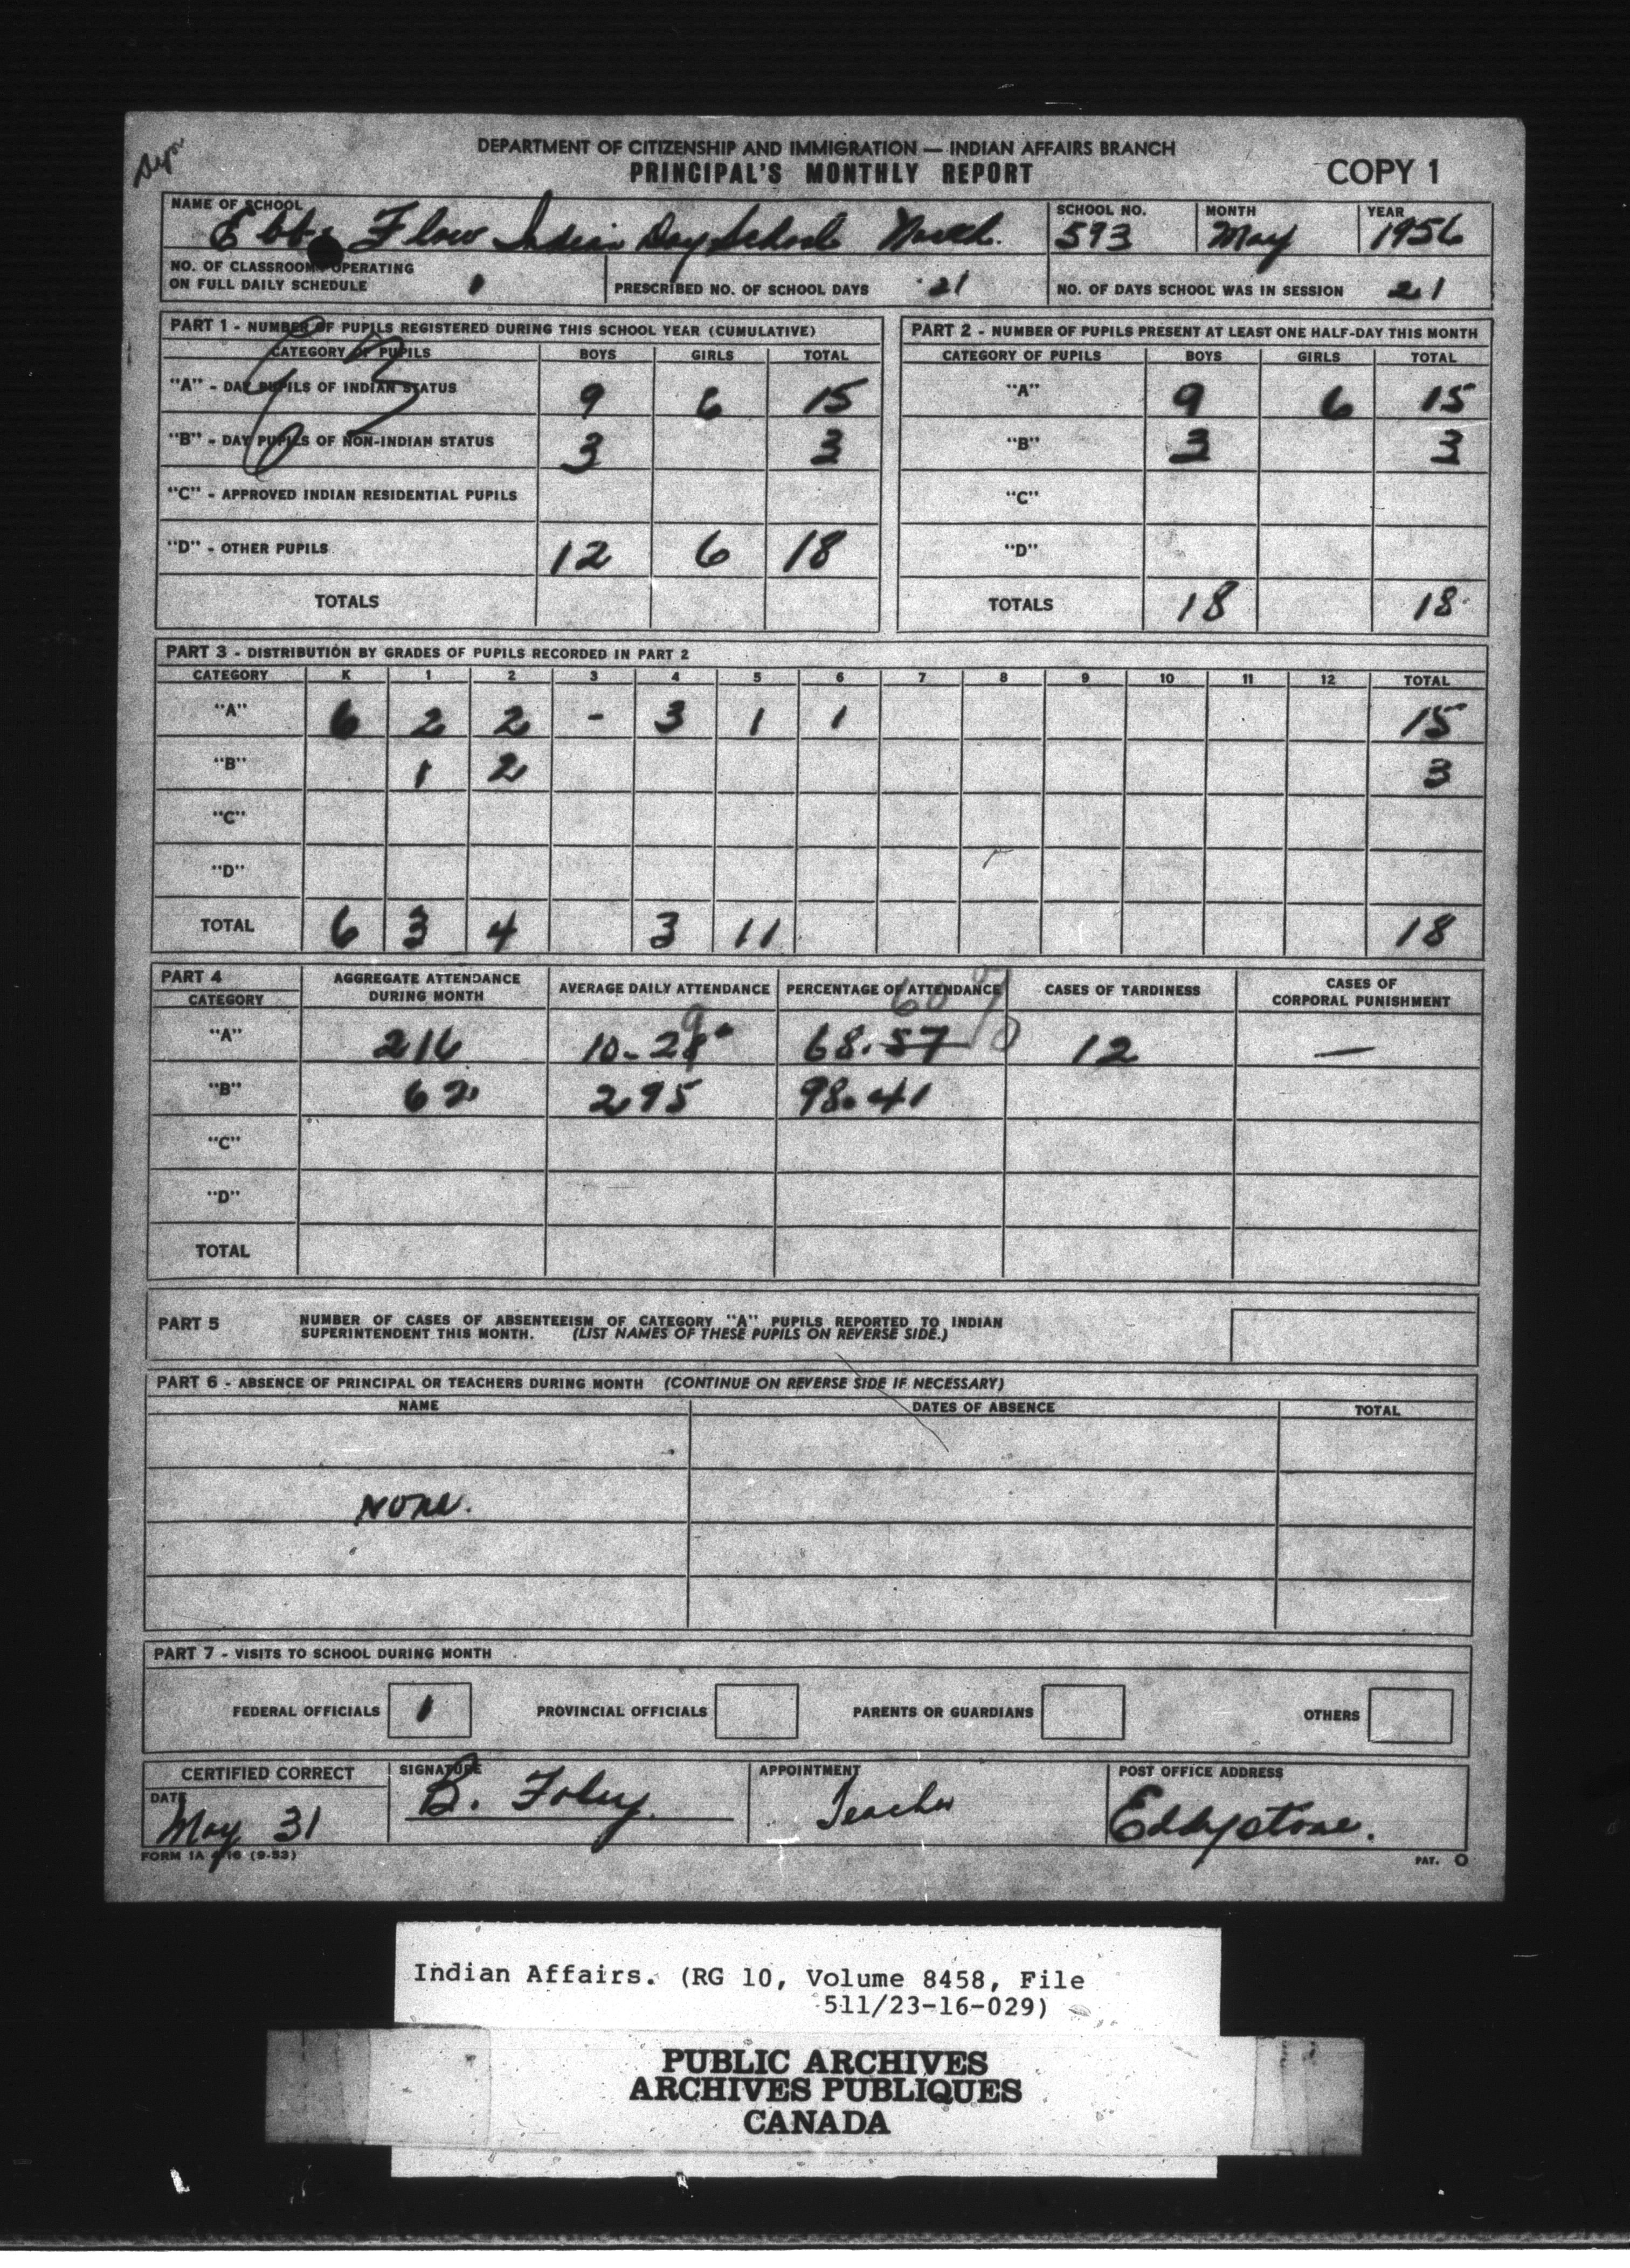 Dept
DEPARTMENT OF CITIZENSHIP AND IMMIGRATION — INDIAN AFFAIRS BRANCH
PRINCIPAL'S MONTHLY REPORT COPY 1
NAME OF SCHOOL SCHOOL NO. MONTH YEAR
Ebb & Flow Indian Day School North. 593 May 1956
NO. OF CLASSROOMS OPERATING
ON FULL DAILY SCHEDULE 1 PRESCRIBED NO. OF SCHOOL DAYS 21 NO. OF DAYS SCHOOL WAS IN SESSION 21
PART 1 - NUMBER OF PUPILS REGISTERED DURING THIS SCHOOL YEAR (CUMULATIVE)
CATEGORY OF PUPILS BOYS GIRLS TOTAL
"A" - DAY PUPILS OF INDIAN STATUS 9 6 15
"B" - DAY PUPILS OF NON-INDIAN STATUS 3 3
"C" - APPROVED INDIAN RESIDENTIAL PUPILS
"D" - OTHER PUPILS 12 6 18
TOTALS
PART 2 - NUMBER OF PUPILS PRESENT AT LEAST ONE HALF-DAY THIS MONTH
CATEGORY OF PUPILS BOYS GIRLS TOTAL
"A" 9 6 15
"B" 3 3
"C"
"D"
TOTALS 18 18
PART 3 - DISTRIBUTION BY GRADES OF PUPILS RECORDED IN PART 2
CATEGORY K 1 2 3 4 5 6 7 8 9 10 11 12 TOTAL
"A" 6 2 2 - 3 1 1 15
"B" 1 2 3
"C"
"D"
TOTAL 6 3 4 3 1 1 18
PART 4
CATEGORY AGGREGATE ATTENDANCE DURING MONTH AVERAGE DAILY ATTENDANCE PERCENTAGE OF ATTENDANCE CASES OF TARDINESS CASES OF CORPORAL PUNISHMENT
"A" 216 10-28 68.57 12 —
"B" 62 295 98.41
"C"
"D"
TOTAL
PART 5 NUMBER OF CASES OF ABSENTEEISM OF CATEGORY "A" PUPILS REPORTED TO INDIAN
SUPERINTENDENT THIS MONTH. (LIST NAMES OF THESE PUPILS ON REVERSE SIDE.)
PART 6 - ABSENCE OF PRINCIPAL OR TEACHERS DURING MONTH (CONTINUE ON REVERSE SIDE IF NECESSARY)
NAME DATES OF ABSENCE TOTAL
None.
PART 7 - VISITS TO SCHOOL DURING MONTH
FEDERAL OFFICIALS 1 PROVINCIAL OFFICIALS PARENTS OR GUARDIANS OTHERS
CERTIFIED CORRECT SIGNATURE APPOINTMENT POST OFFICE ADDRESS
DATE
May 31 B. Foley. Teacher Eddystone.
FORM 1A 4-16 (9-53) PAT. O
Indian Affairs. (RG 10, Volume 8458, File
511/23-16-029)
PUBLIC ARCHIVES
ARCHIVES PUBLIQUES
CANADA